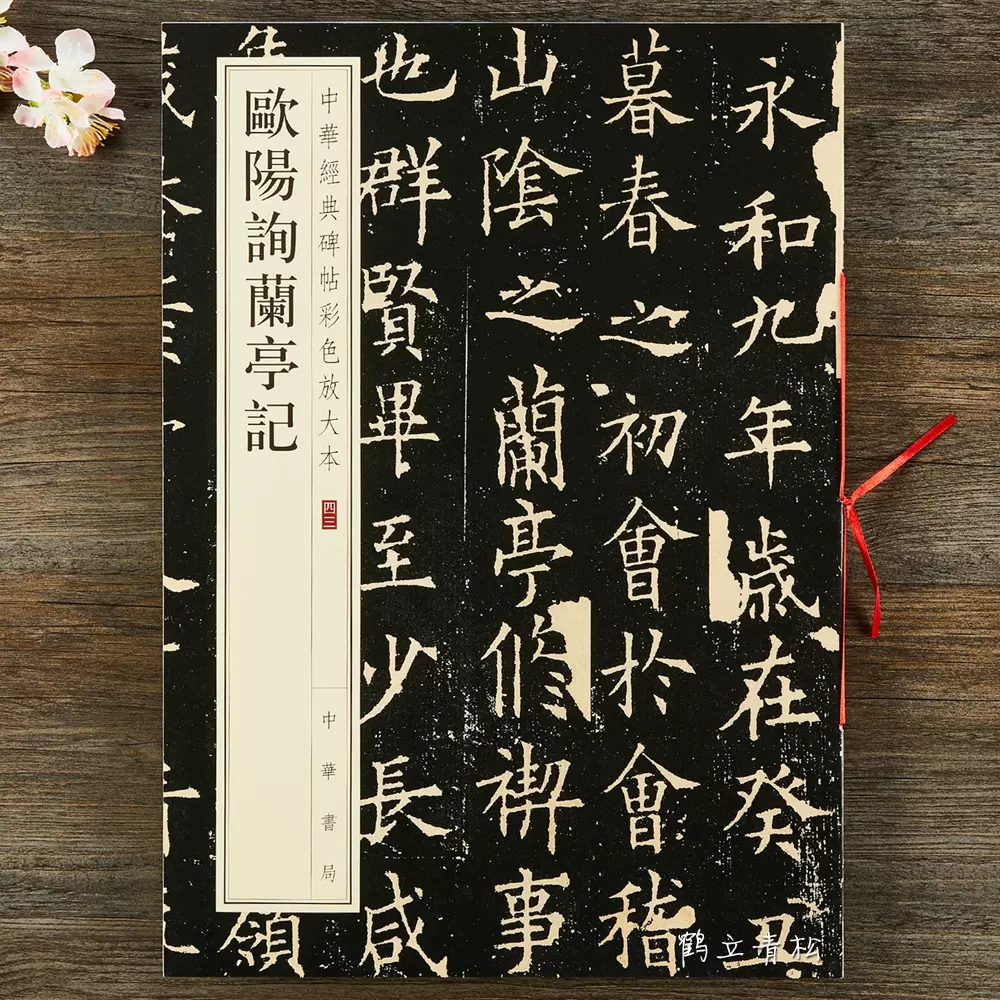 永和九年歲在癸丑
暮春之初會於會稽
山陰之蘭亭修禊事
也群賢畢至少長咸
領
中華經典碑帖彩色放大本 四三
中華書局
歐陽詢蘭亭記
鹤立青松